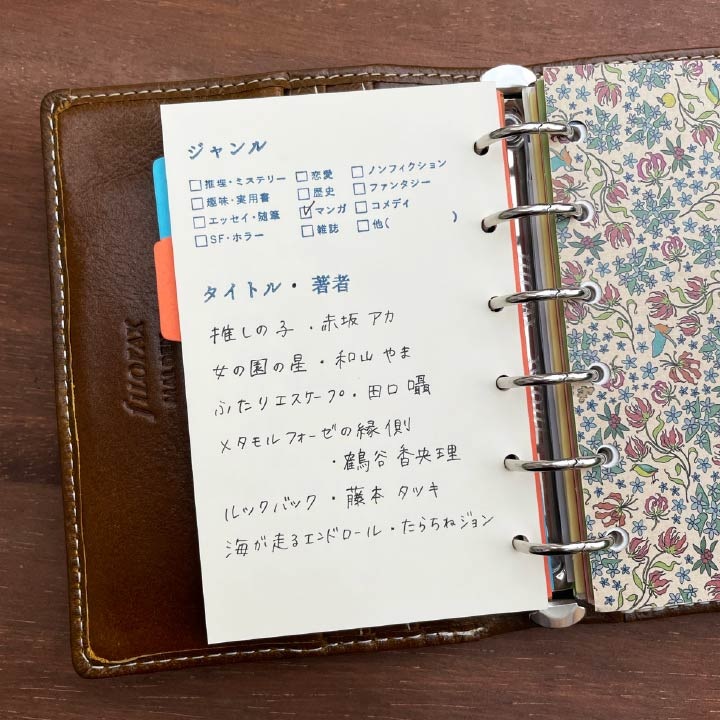 ジャンル
□推理・ミステリー □恋愛 □ノンフィクション
□趣味・実用書 □歴史 □ファンタジー
□エッセイ・随筆 ☑マンガ □コメディ
□SF・ホラー □雑誌 □他( )
タイトル・著者
推しの子・赤坂アカ
女の園の星・和山やま
ふたりエスケープ・田口囁
メタモルフォーゼの縁側
・鶴谷香央理
ルックバック・藤本タツキ
海が走るエンドロール・たらちねジョン
fILOFAX